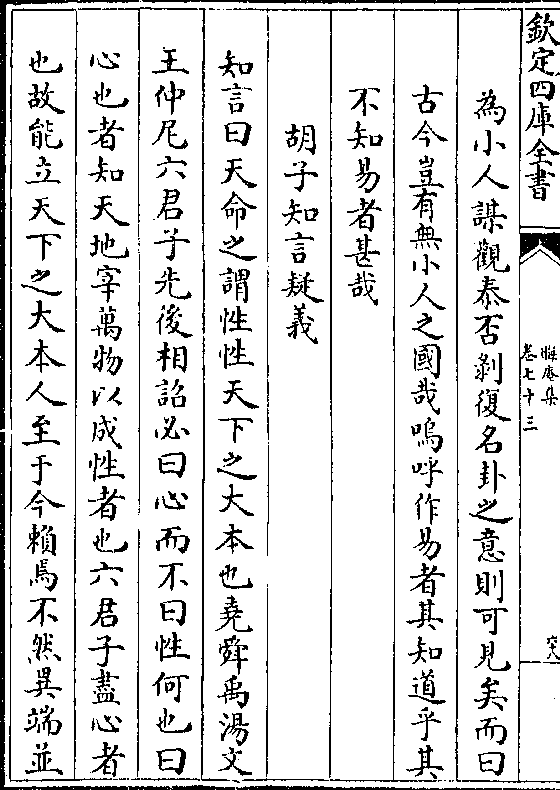 欽定四庫全書
晦庵集
卷七十三
為小人謀觀泰否剝復名卦之意則可見矣而曰
古今豈有無小人之國哉嗚呼作易者其知道乎其
不知易者甚哉
胡子知言疑義
知言曰天命之謂性性天下之大本也堯舜禹湯文
王仲尼六君子先後相詔必曰心而不曰性何也曰
心也者知天地宰萬物以成性者也六君子盡心者
也故能立天下之大本人至于今賴焉不然異端並